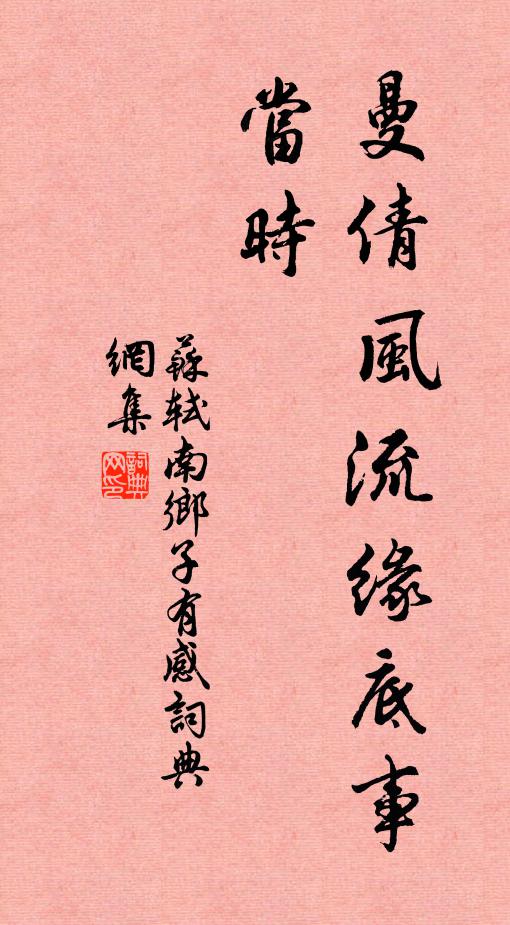 曼倩風流緣底事
當時
蘇軾南鄉子有感詞典
網集
詞典
网印